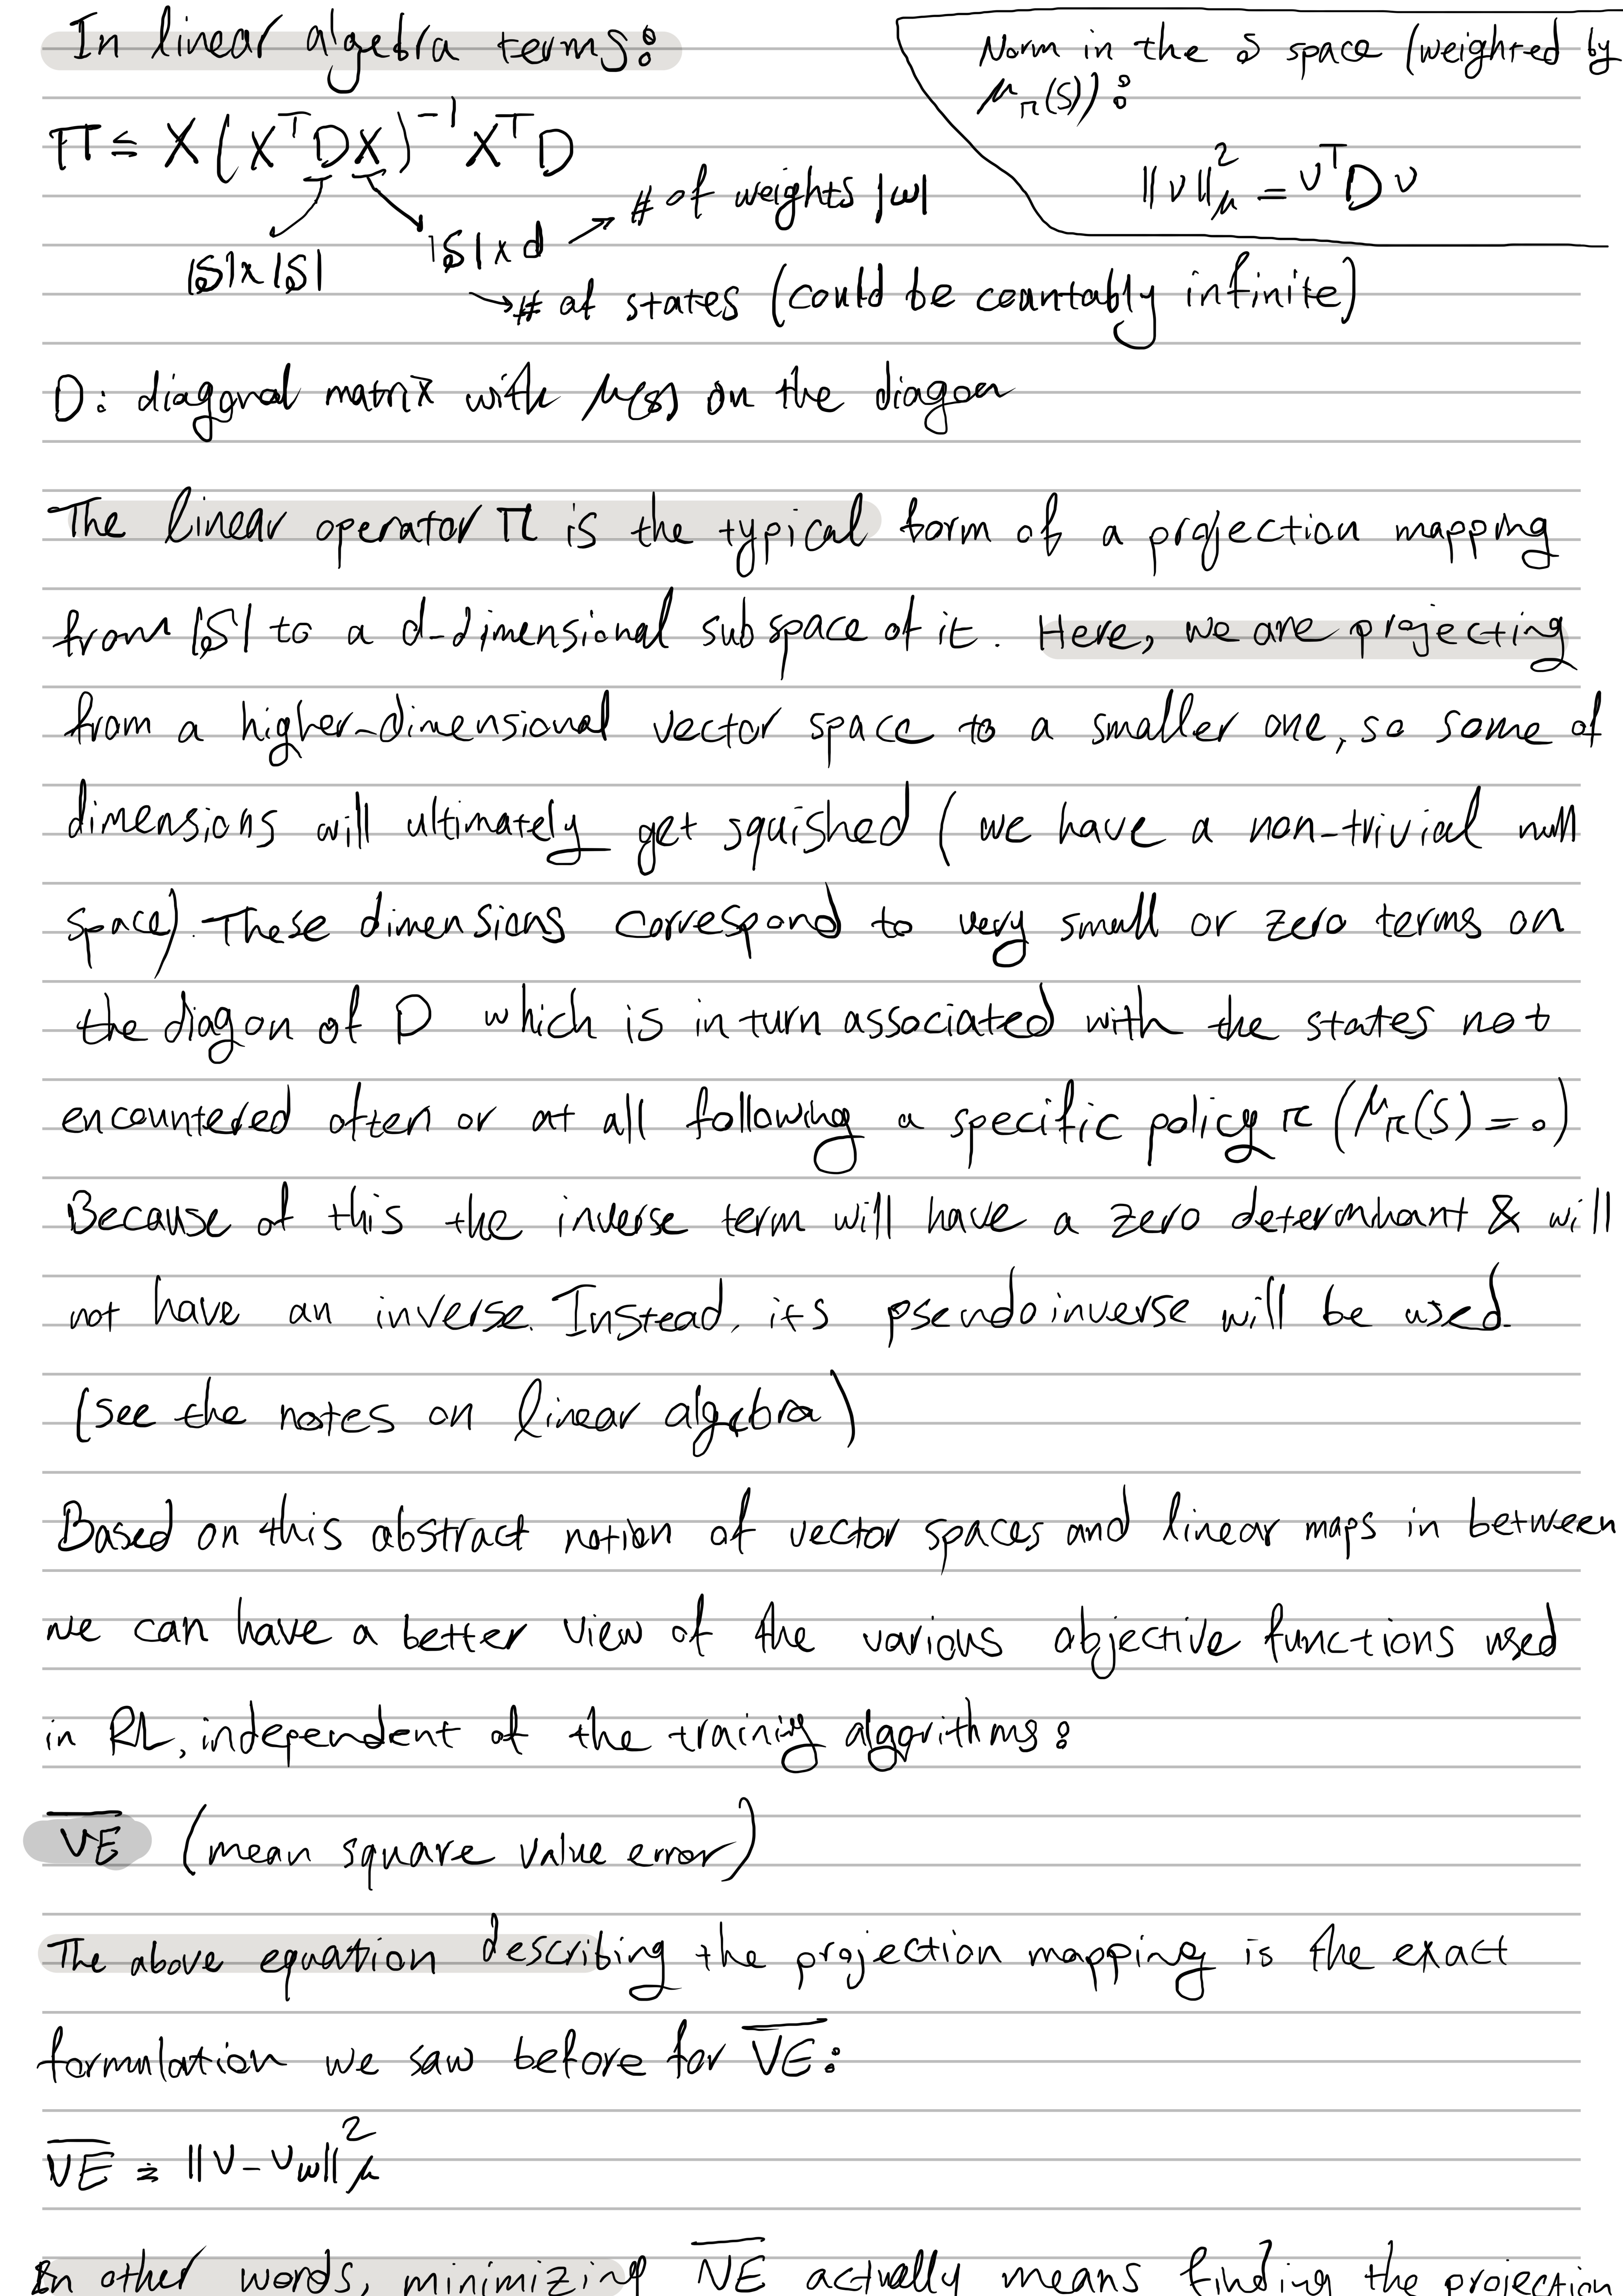 In linear algebra terms:
Norm in the S space (weighted by
μ_π(S)):
‖v‖²_μ = vᵀDv
Π ≐ X(XᵀDX)⁻¹XᵀD
# of weights |w|
|S|×d
|S|×|S|
# of states (could be countably infinite)
D: diagonal matrix with μ(s) on the diagon
The linear operator Π is the typical form of a projection mapping
from |S| to a d-dimensional subspace of it. Here, we are projecting
from a higher-dimensional vector space to a smaller one, so some of
dimensions will ultimately get squished (we have a non-trivial null
space). These dimensions correspond to very small or zero terms on
the diagon of D which is in turn associated with the states not
encountered often or at all following a specific policy π (μ_π(S)=0)
Because of this the inverse term will have a zero determinant & will
not have an inverse. Instead, its pseudoinverse will be used
(see the notes on linear algebra)
Based on this abstract notion of vector spaces and linear maps in between
we can have a better view of the various objective functions used
in RL, independent of the training algorithms:
V̅E̅ (mean square value error)
The above equation describing the projection mapping is the exact
formulation we saw before for V̅E̅:
V̅E̅ ≐ ‖v-v_w‖²_μ
In other words, minimizing V̅E̅ actually means finding the projection